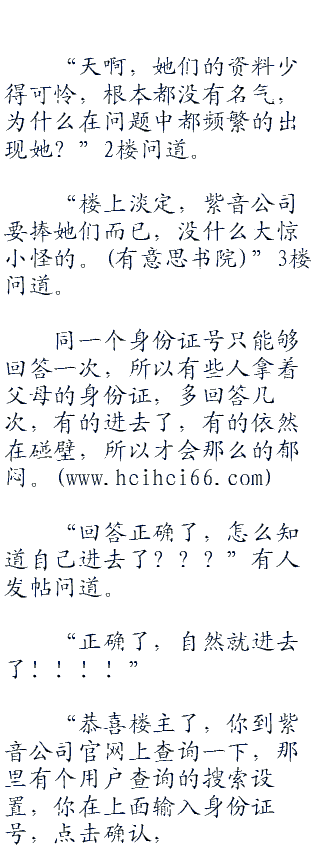 “天啊，她们的资料少
得可怜，根本都没有名气，
为什么在问题中都频繁的出
现她？”2楼问道。
“楼上淡定，紫音公司
要捧她们而已，没什么大惊
小怪的。(有意思书院)”3楼
问道。
同一个身份证号只能够
回答一次，所以有些人拿着
父母的身份证，多回答几
次，有的进去了，有的依然
在碰壁，所以才会那么的郁
闷。(www.hcihci66.com)
“回答正确了，怎么知
道自己进去了？？？”有人
发帖问道。
“正确了，自然就进去
了！！！！”
“恭喜楼主了，你到紫
音公司官网上查询一下，那
里有个用户查询的搜索设
置，你在上面输入身份证
号，点击确认，